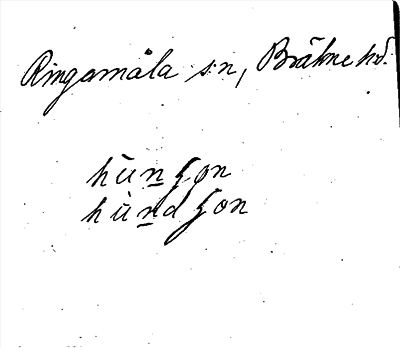 Ringamåla s:n, Bräkne hd.
hùn̲ʃon
hùn̲dʃon